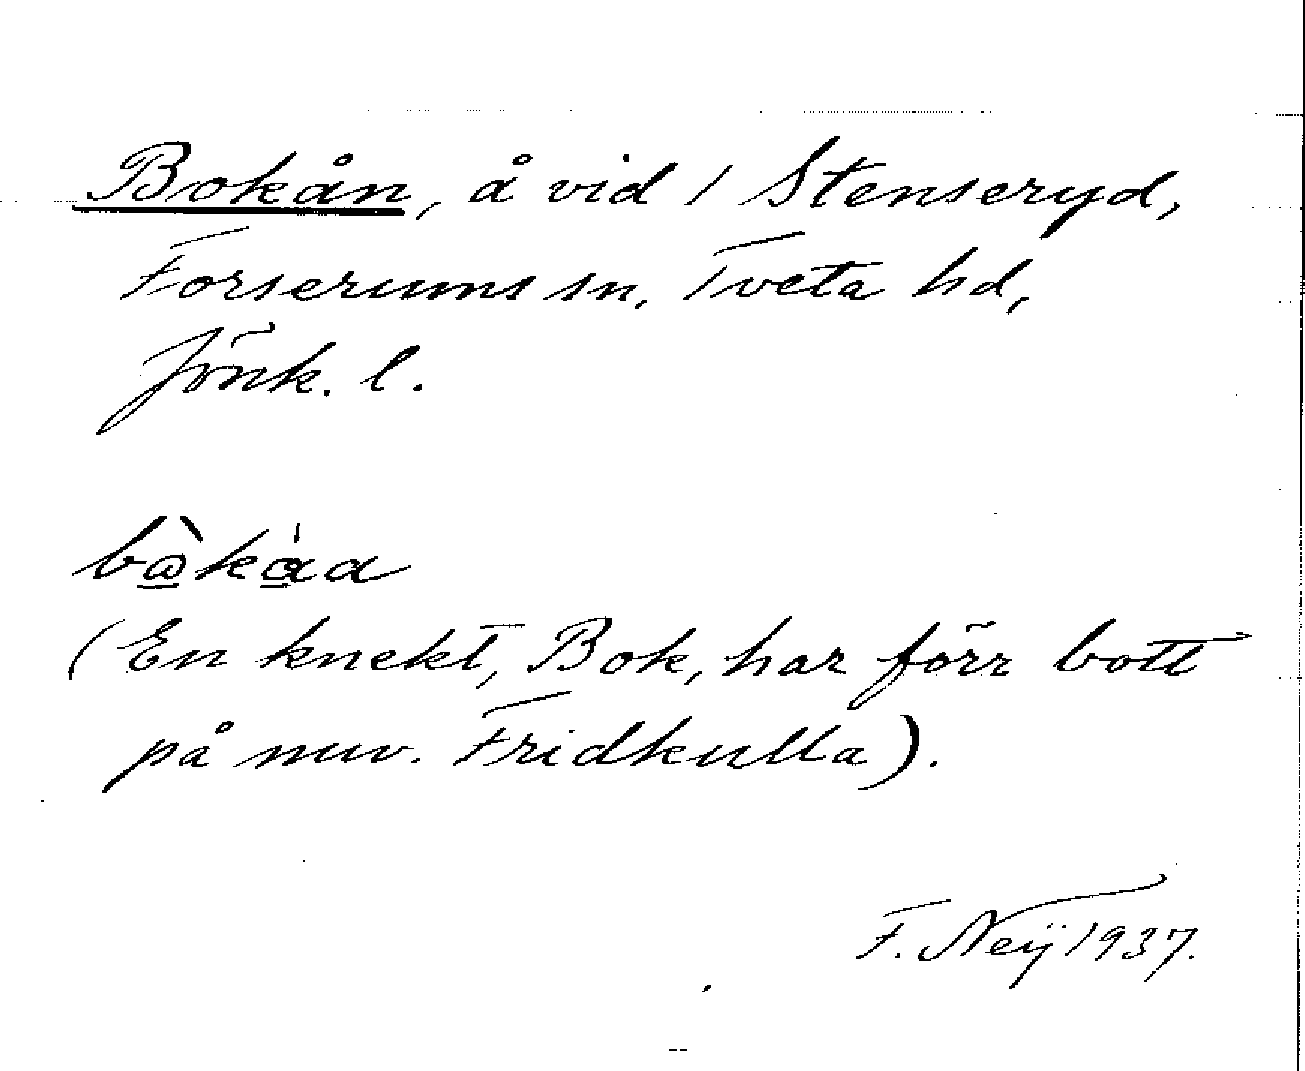 Bokån, å vid 1 Stenseryd,
Forserums sn, Tveta hd,
Jönk. l.
(En knekt, Bok, har förr bott
på nuv. Fridkulla).
F. Neij 1937.